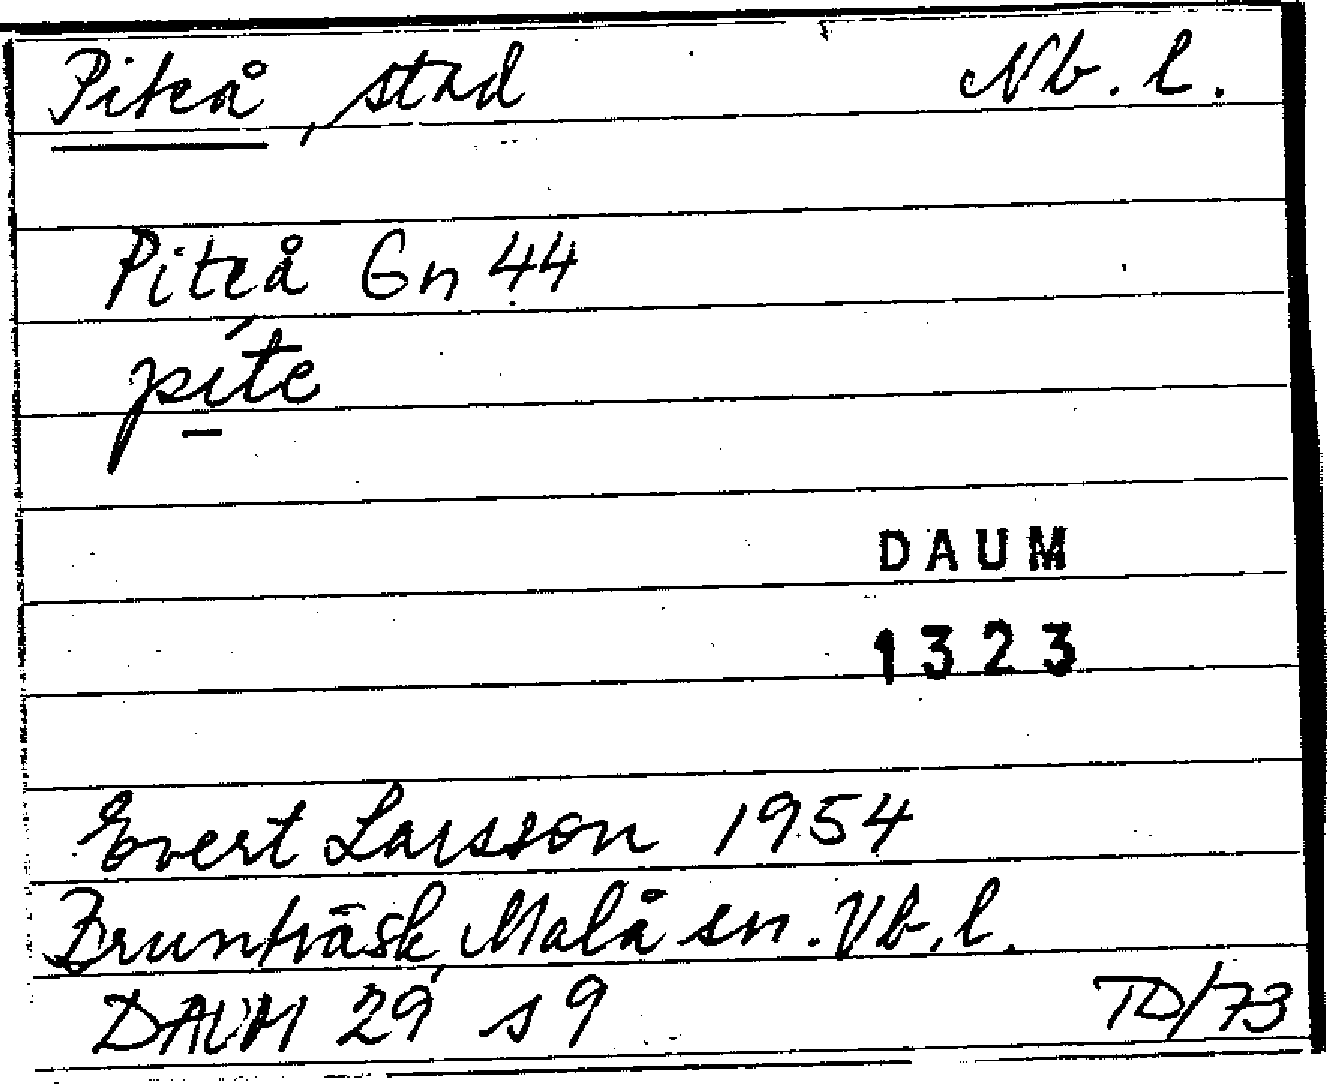 Piteå, stad Nb. l.
Piteå Gn 44
píte
DAUM
1323
Evert Larsson 1954
Brunträsk, Malå sn. Vb. l.
DAUM 29 s 9 TD/73